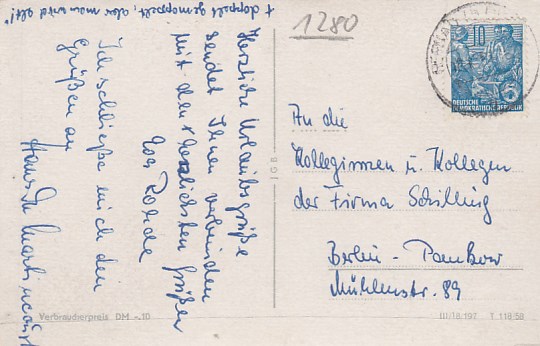 + doppelt gemoppelt, aber man wird alt!"
Herzliche Urlaubsgrüße
sendet Ihnen verbunden
mit den herzlichsten Grüßen
Ich schließe mich den
Grüßen an
Hans
1280
10
DEUTSCHE
DEMOKRATISCHE REPUBLIK
An die
Kolleginnen u. Kollegen
der Firma Schilling
Berlin-Pankow
Mühlenstr. 89
Verbraucherpreis DM -.10
III/18/197 T 118 58